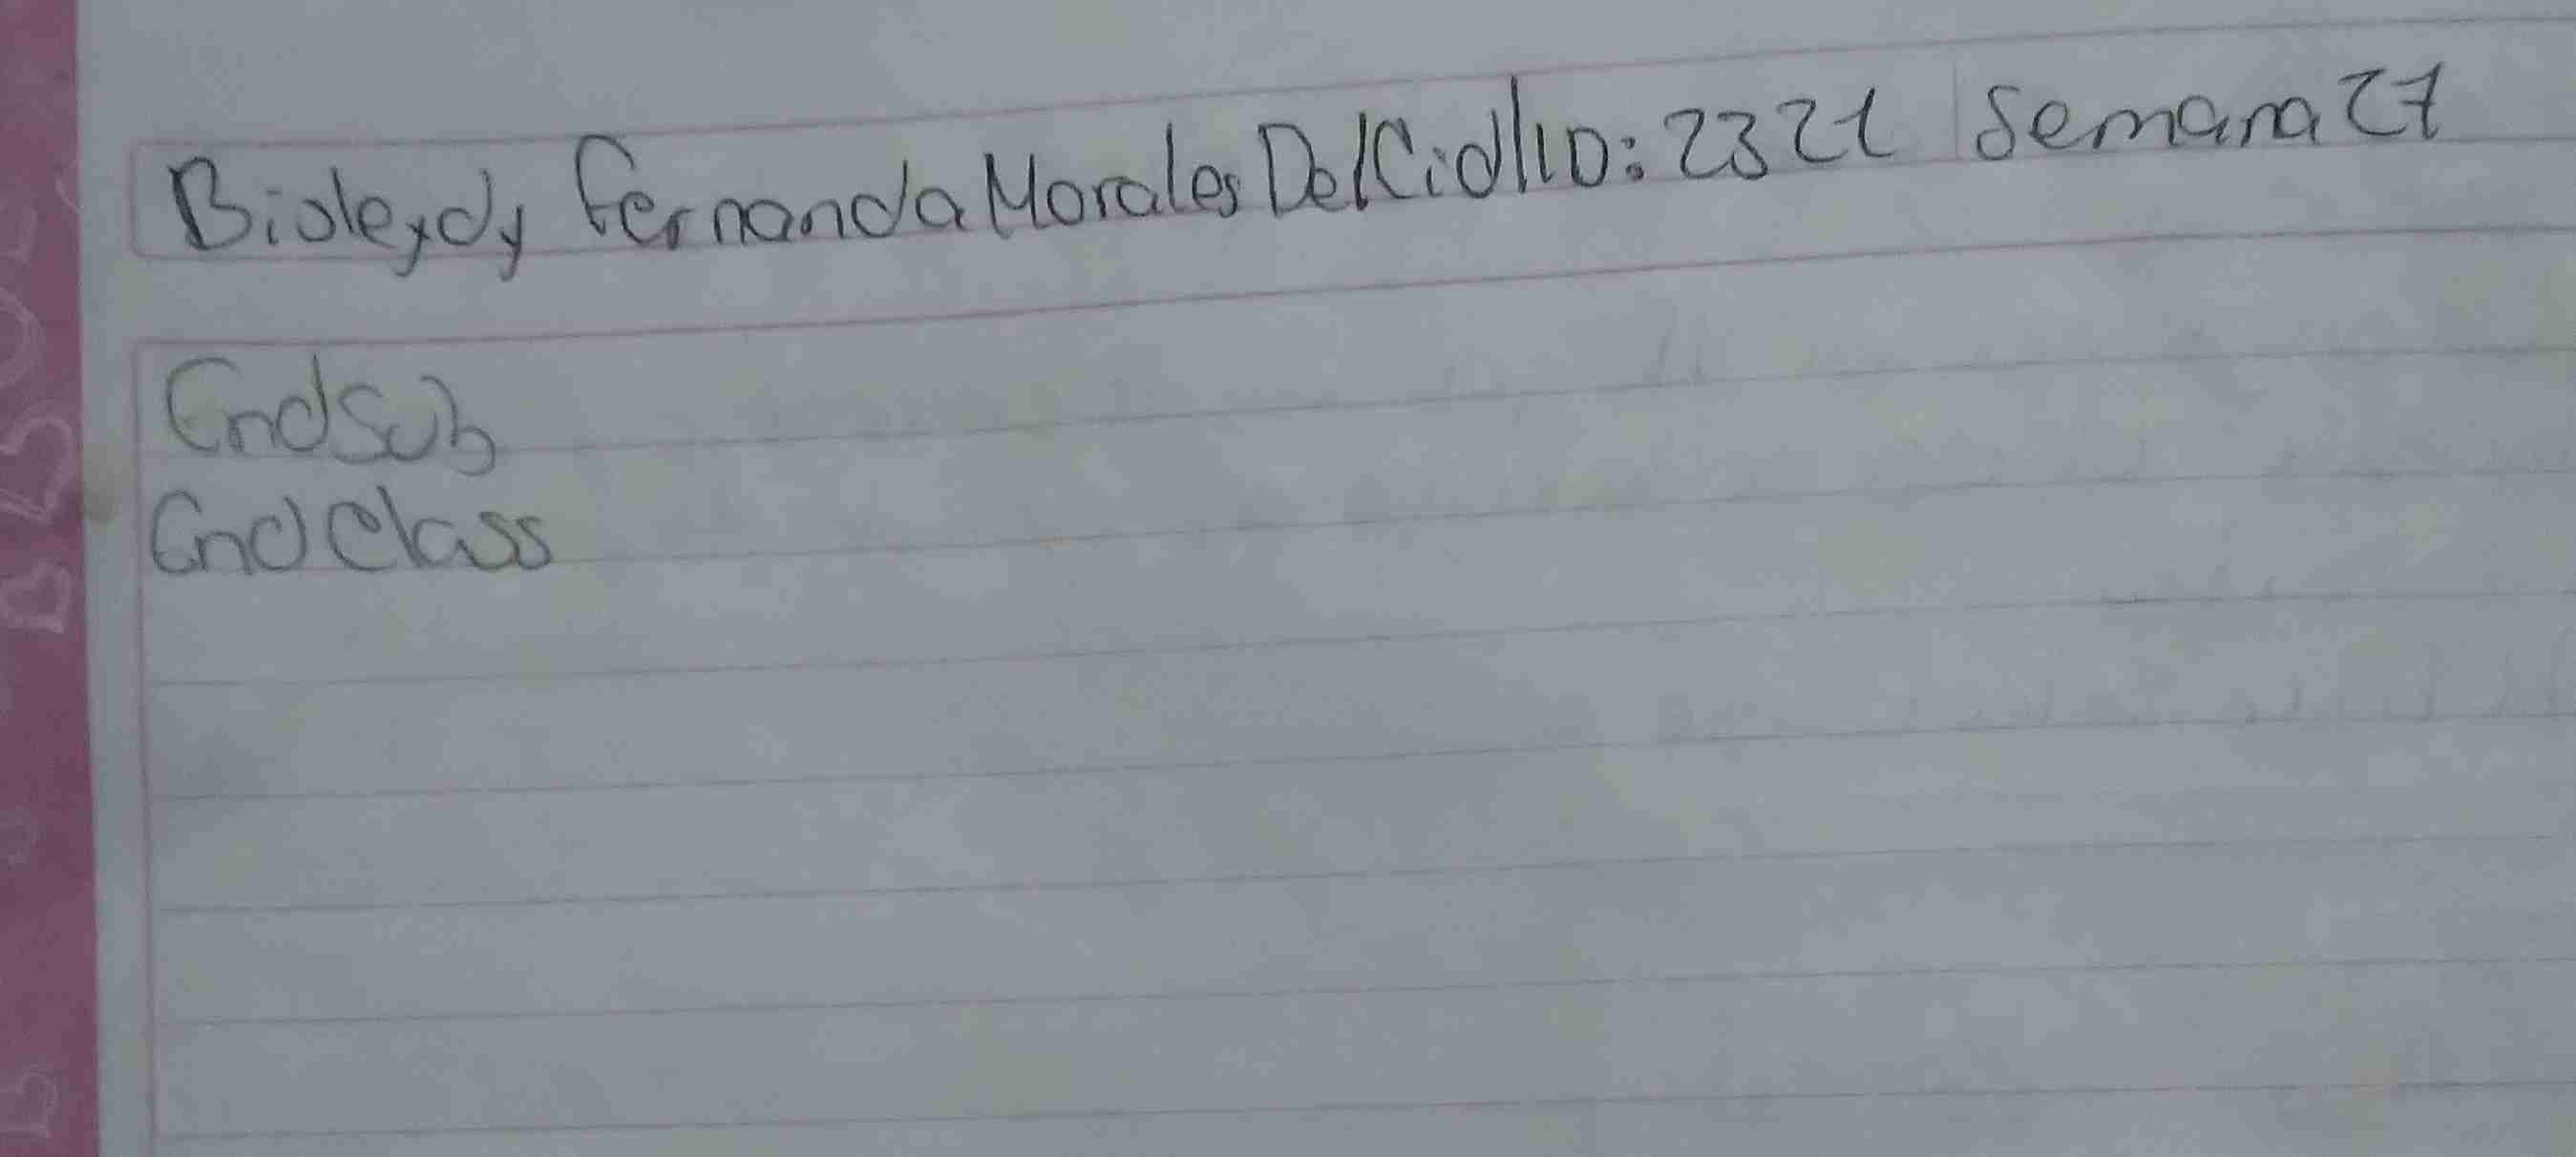 Bioleydy Fernanda Morales Del Cid||ID: 2321 Semana 27
End Sub
End Class